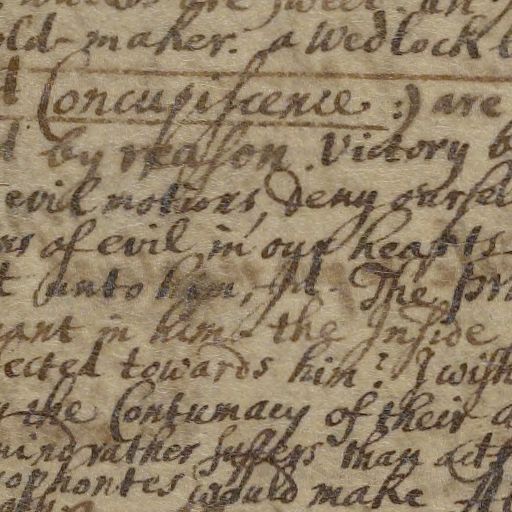 are sweet. an
old-maker. a Wedlock
Concupiscence :) are
by reason. Victory b
evil notions, deny oursel
ns of evil in our hearts
t unto him, Id. The pri
ant in him. the Inside
lected towards him? I wish
the Contumacy of their
mind rather suffers than acts
cophontes would make At